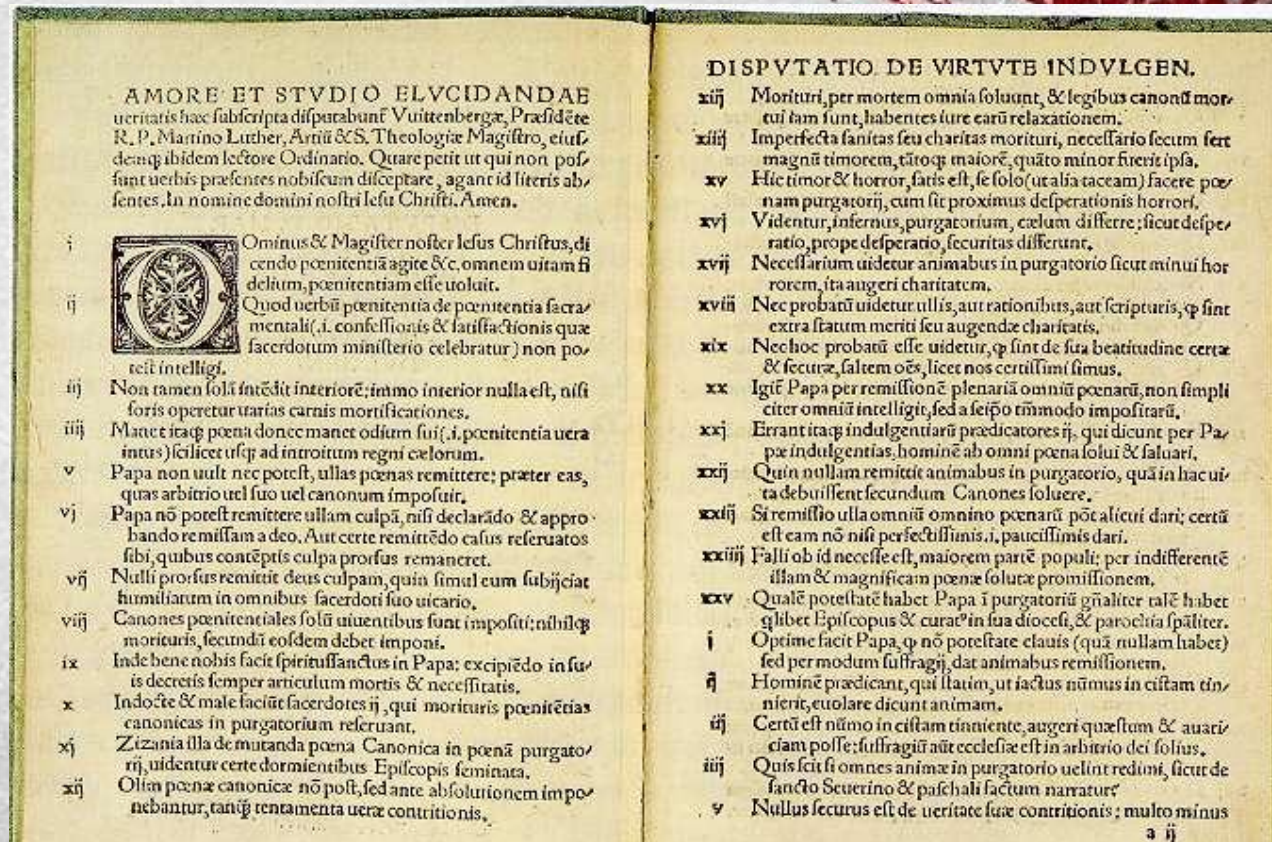 AMORE ET STVDIO ELVCIDANDAE
ueritatis hæc subscripta disputabunť Vuittenbergæ, Præsidẽte
R. P. Martino Luther, Artiũ & S. Theologiæ Magistro, eius-
demq; ibidem lectore Ordinario. Quare petit ut qui non pos-
sunt uerbis præsentes nobiscum disceptare, agant id literis ab-
sentes. In nomine domini nostri Iesu Christi. Amen.
i Ominus & Magister noster Iesus Christus, di
cendo pœnitentiã agite &c. omnem uitam fi
delium, pœnitentiam esse uoluit.
ij Quod uerbũ pœnitentia de pœnitentia sacra-
mentali (.i. confessionis & satisfactionis quæ
sacerdotum ministerio celebratur) non po-
test intelligi.
iij Non tamen solã intẽdit interiorẽ: immo interior nulla est, nisi
foris operetur uarias carnis mortificationes.
iiij Manet itaq; pœna donec manet odium sui (.i. pœnitentia uera
intus) scilicet usq; ad introitum regni cælorum.
v Papa non uult nec potest, ullas pœnas remittere: præter eas,
quas arbitrio uel suo uel canonum imposuit.
vj Papa nõ potest remittere ullam culpã, nisi declarãdo & appro-
bando remissam a deo. Aut certe remittẽdo casus reseruatos
sibi, quibus contẽptis culpa prorsus remaneret.
vij Nulli prorsus remittit deus culpam, quin simul eum subijciat
humiliatum in omnibus sacerdoti suo uicario.
viij Canones pœnitentiales solũ uiuentibus sunt impositi: nihilq;
morituris, secundũ eosdem debet imponi.
ix Inde bene nobis facit spiritussanctus in Papa: excipiẽdo in su-
is decretis semper articulum mortis & necessitatis.
x Indocte & male faciũt sacerdotes ij, qui morituris pœnitẽtias
canonicas in purgatorium reseruant.
xj Zizania illa de mutanda pœna Canonica in pœnã purgato-
rij, uidentur certe dormientibus Episcopis seminata.
xij Olim pœnæ canonicæ nõ post, sed ante absolutionem impo-
nebantur, tanq̃ tentamenta ueræ contritionis.
DISPVTATIO DE VIRTVTE INDVLGEN.
xiij Morituri, per mortem omnia soluunt, & legibus canonũ mor-
tui iam sunt, habentes iure earũ relaxationem.
xiiij Imperfecta sanitas seu charitas morituri, necessario secum fert
magnũ timorem, tãtoq; maiorẽ, quãto minor fuerit ipsa.
xv Hic timor & horror, satis est, se solo (ut alia taceam) facere pœ-
nam purgatorij, cum sit proximus desperationis horrori.
xvj Videntur, infernus, purgatorium, cælum differre: sicut despe-
ratio, prope desperatio, securitas differunt.
xvij Necessarium uidetur animabus in purgatorio sicut minui hor
rorem, ita augeri charitatem.
xviij Nec probatũ uidetur ullis, aut rationibus, aut scripturis, ꝙ sint
extra statum meriti seu augendæ charitatis.
xix Nec hoc probatũ esse uidetur, ꝙ sint de sua beatitudine certæ
& securæ, saltem oẽs, licet nos certissimi simus.
xx Igiť Papa per remissionẽ plenariã omniũ pœnarũ, non simpli
citer omniũ intelligit, sed a seipo tm̃modo impositarũ.
xxj Errant itaq; indulgentiarũ prædicatores ij, qui dicunt per Pa-
pæ indulgentias, hominẽ ab omni pœna solui & saluari.
xxij Quin nullam remittit animabus in purgatorio, quã in hac ui-
ta debuissent secundum Canones soluere.
xxiij Si remissio ulla omniũ omnino pœnarũ põt alicui dari: certũ
est eam nõ nisi perfectissimis .i. paucissimis dari.
xxiiij Falli ob id necesse est, maiorem partẽ populi: per indifferentẽ
illam & magnificam pœnæ solutæ promissionem.
xxv Qualẽ potestatẽ habet Papa ĩ purgatoriũ gñaliter talẽ habet
q̃libet Episcopus & curatꝰ in sua diocesi, & parochia sp̃aliter.
j Optime facit Papa, ꝙ nõ potestate clauis (quã nullam habet)
sed per modum suffragij, dat animabus remissionem.
ij Hominẽ prædicant, qui statim, ut iactus nũmus in cistam tin-
nierit, euolare dicunt animam.
iij Certũ est nũmo in cistam tinniente, augeri quæstum & auari-
ciam posse: suffragiũ aũt ecclesiæ est in arbitrio dei solius.
iiij Quis scit si omnes animæ in purgatorio uelint redimi, sicut de
sancto Seuerino & paschali factum narratur?
v Nullus securus est de ueritate suæ contritionis: multo minus
a ij